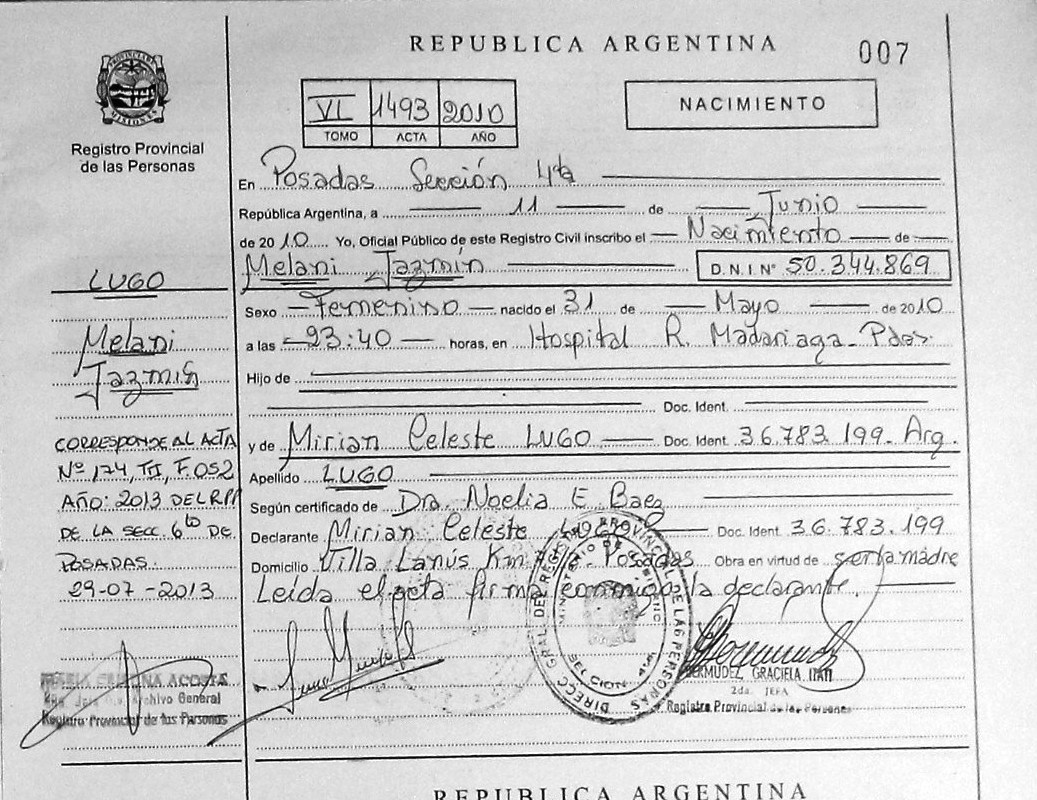 REPUBLICA ARGENTINA
007
PROVINCIA DE MISIONES
Registro Provincial
de las Personas
VI 1493 2010
TOMO ACTA AÑO
NACIMIENTO
En Posadas Sección 4ta
República Argentina, a 11 de Junio
de 2010 Yo, Oficial Público de este Registro Civil inscribo el Nacimiento de
Melani Jazmín D.N.I Nº 50.344.869
Sexo Femenino nacido el 31 de Mayo de 2010
a las 23:40 horas, en Hospital R. Madariaga - Pdas.
Hijo de
Doc. Ident.
y de Mirian Celeste LUGO Doc. Ident. 36.783.199 - Arg.
Apellido LUGO
Según certificado de Dra. Noelia E. Baez
Declarante Mirian Celeste LUGO Doc. Ident. 36.783.199
Domicilio Villa Lanús Km Posadas Obra en virtud de ser la madre
Leída el acta firma conmigo la declarante.
LUGO
Melani
Jazmín
CORRESPONDE AL ACTA
Nº 174, TII, F.052
AÑO: 2013 DEL RPP
DE LA SECC. 6ta DE
POSADAS.
29-07-2013
ACOSTA
Archivo General
Registro Provincial de las Personas
BERMUDEZ, GRACIELA ITATI
2da. JEFA
Registro Provincial de las Personas
REPUBLICA ARGENTINA